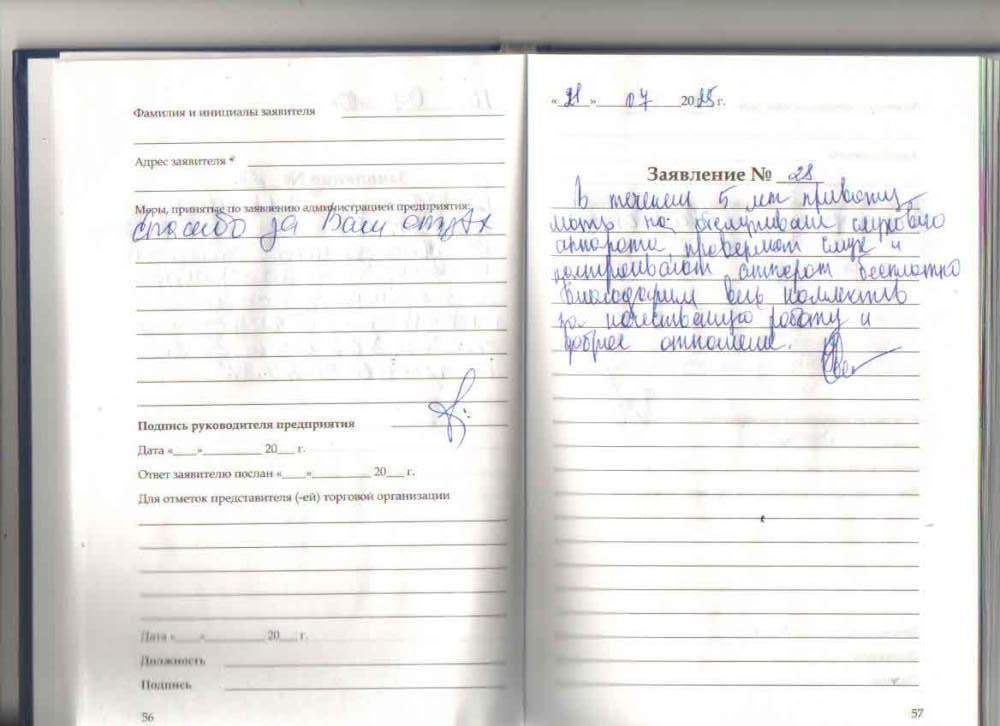 Фамилия и инициалы заявителя
Адрес заявителя *
Меры, принятые по заявлению администрацией предприятия:
спасибо за Ваш отзыв
Подпись руководителя предприятия
Дата «___»__________ 20___ г.
Ответ заявителю послан «____»__________ 20___ г.
Для отметок представителя (-ей) торговой организации
Дата «____«__________ 20___ г.
Должность
Подпись
56
«21 » 07 2025 г.
Заявление № 28
В течении 5 лет
на обслуживан слухового
аппарата, проверяют слух и
аппарат бесплатно
Благодарим весь коллектив
за качественную работу и
доброе отношение.
57